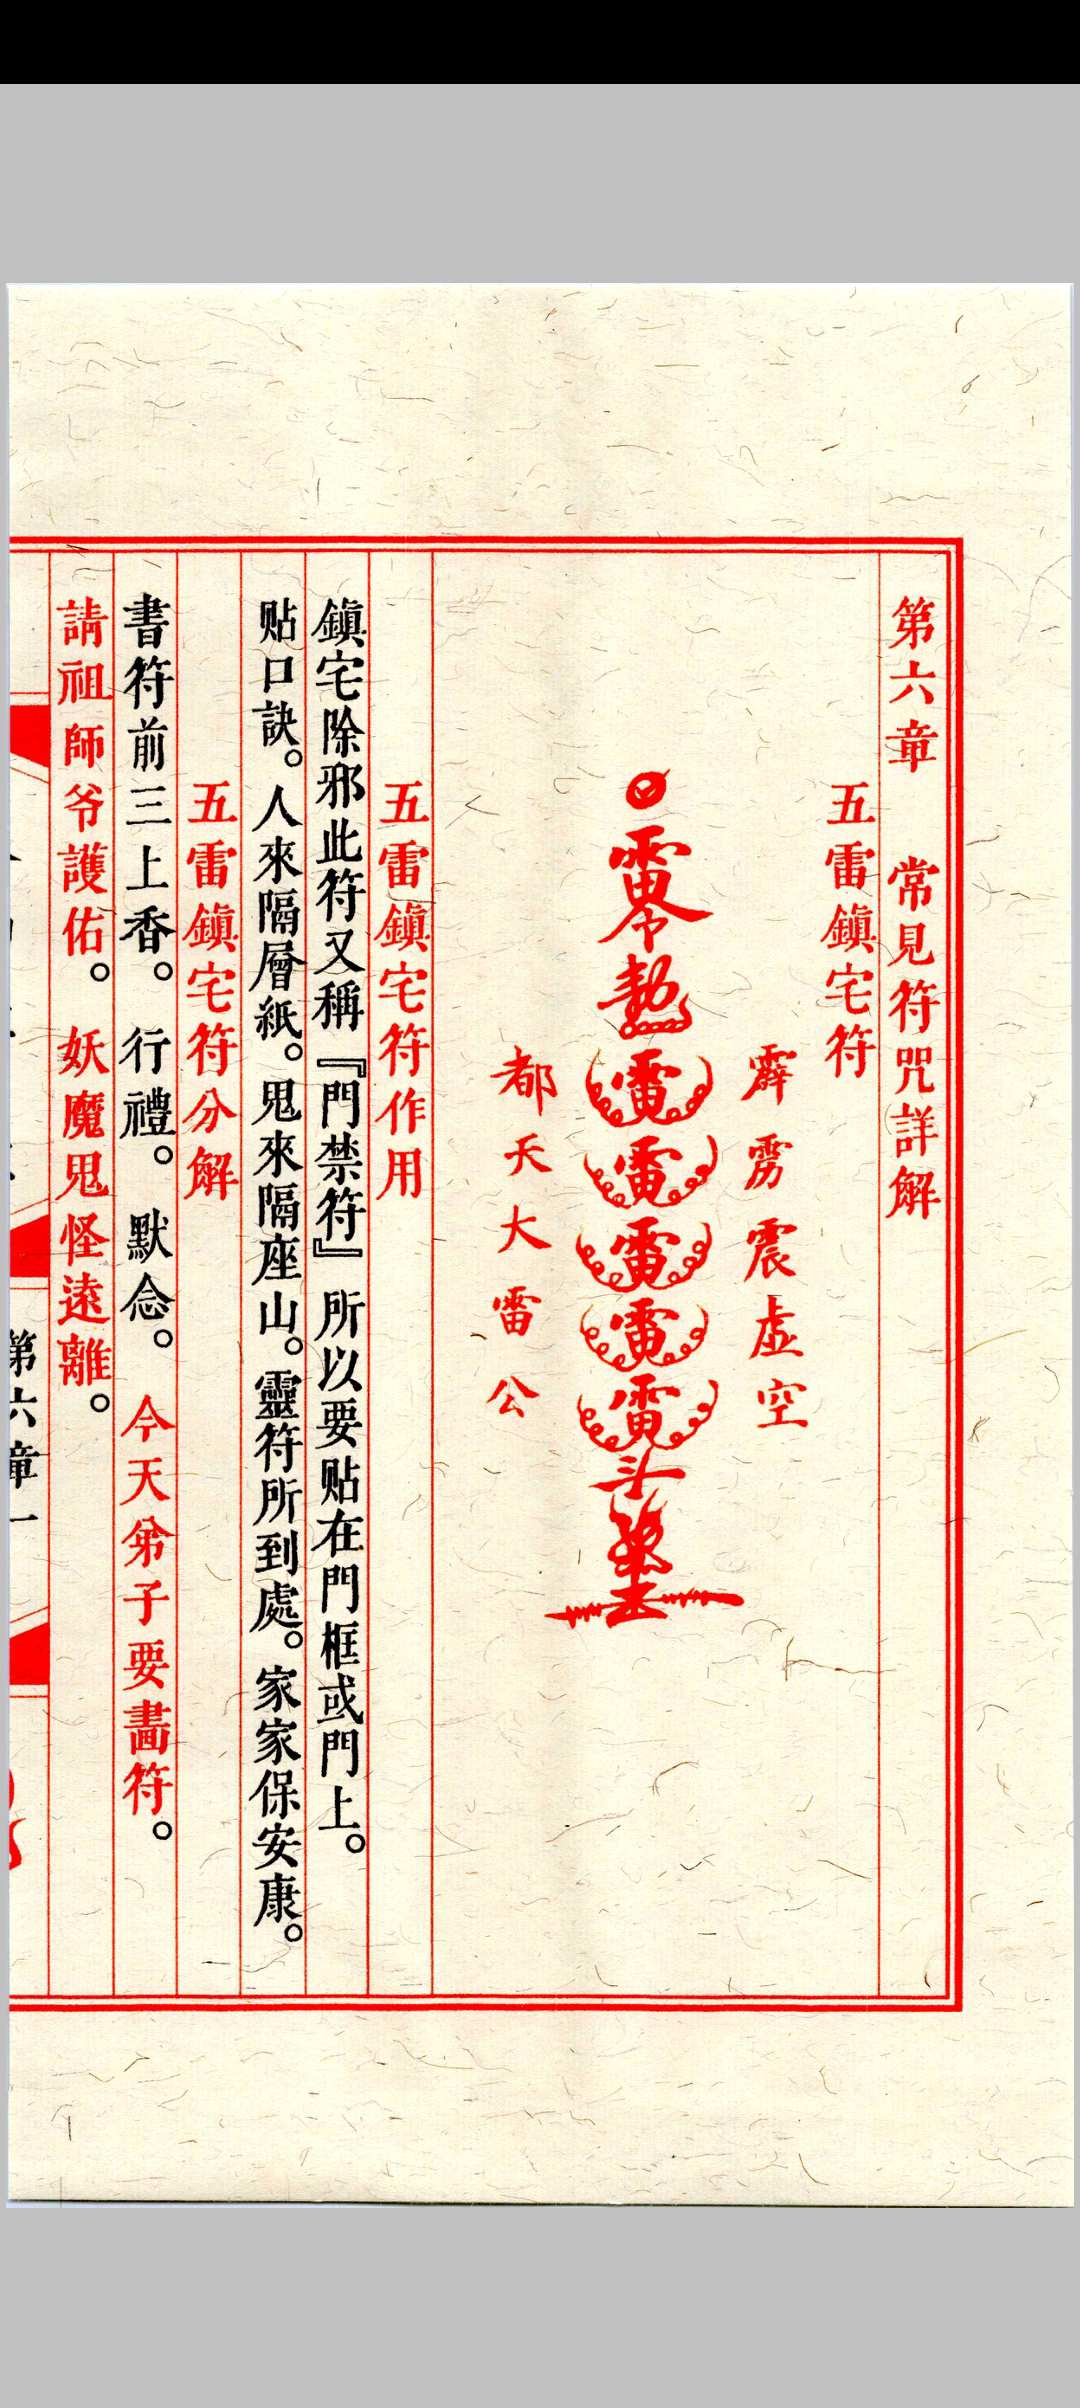 第六章 常見符咒詳解
五雷鎮宅符
霹雳震虚空
雷令
勅
雷
雷
雷
雷
雷
斗
都天大雷公
五雷鎮宅符作用
鎮宅除邪此符又稱『門禁符』所以要贴在門框或門上。
贴口訣。人來隔層紙。鬼來隔座山。靈符所到處。家家保安康。
五雷鎮宅符分解
書符前三上香。行禮。默念。今天弟子要畵符。
請祖師爷護佑。妖魔鬼怪遠離。
第六章一